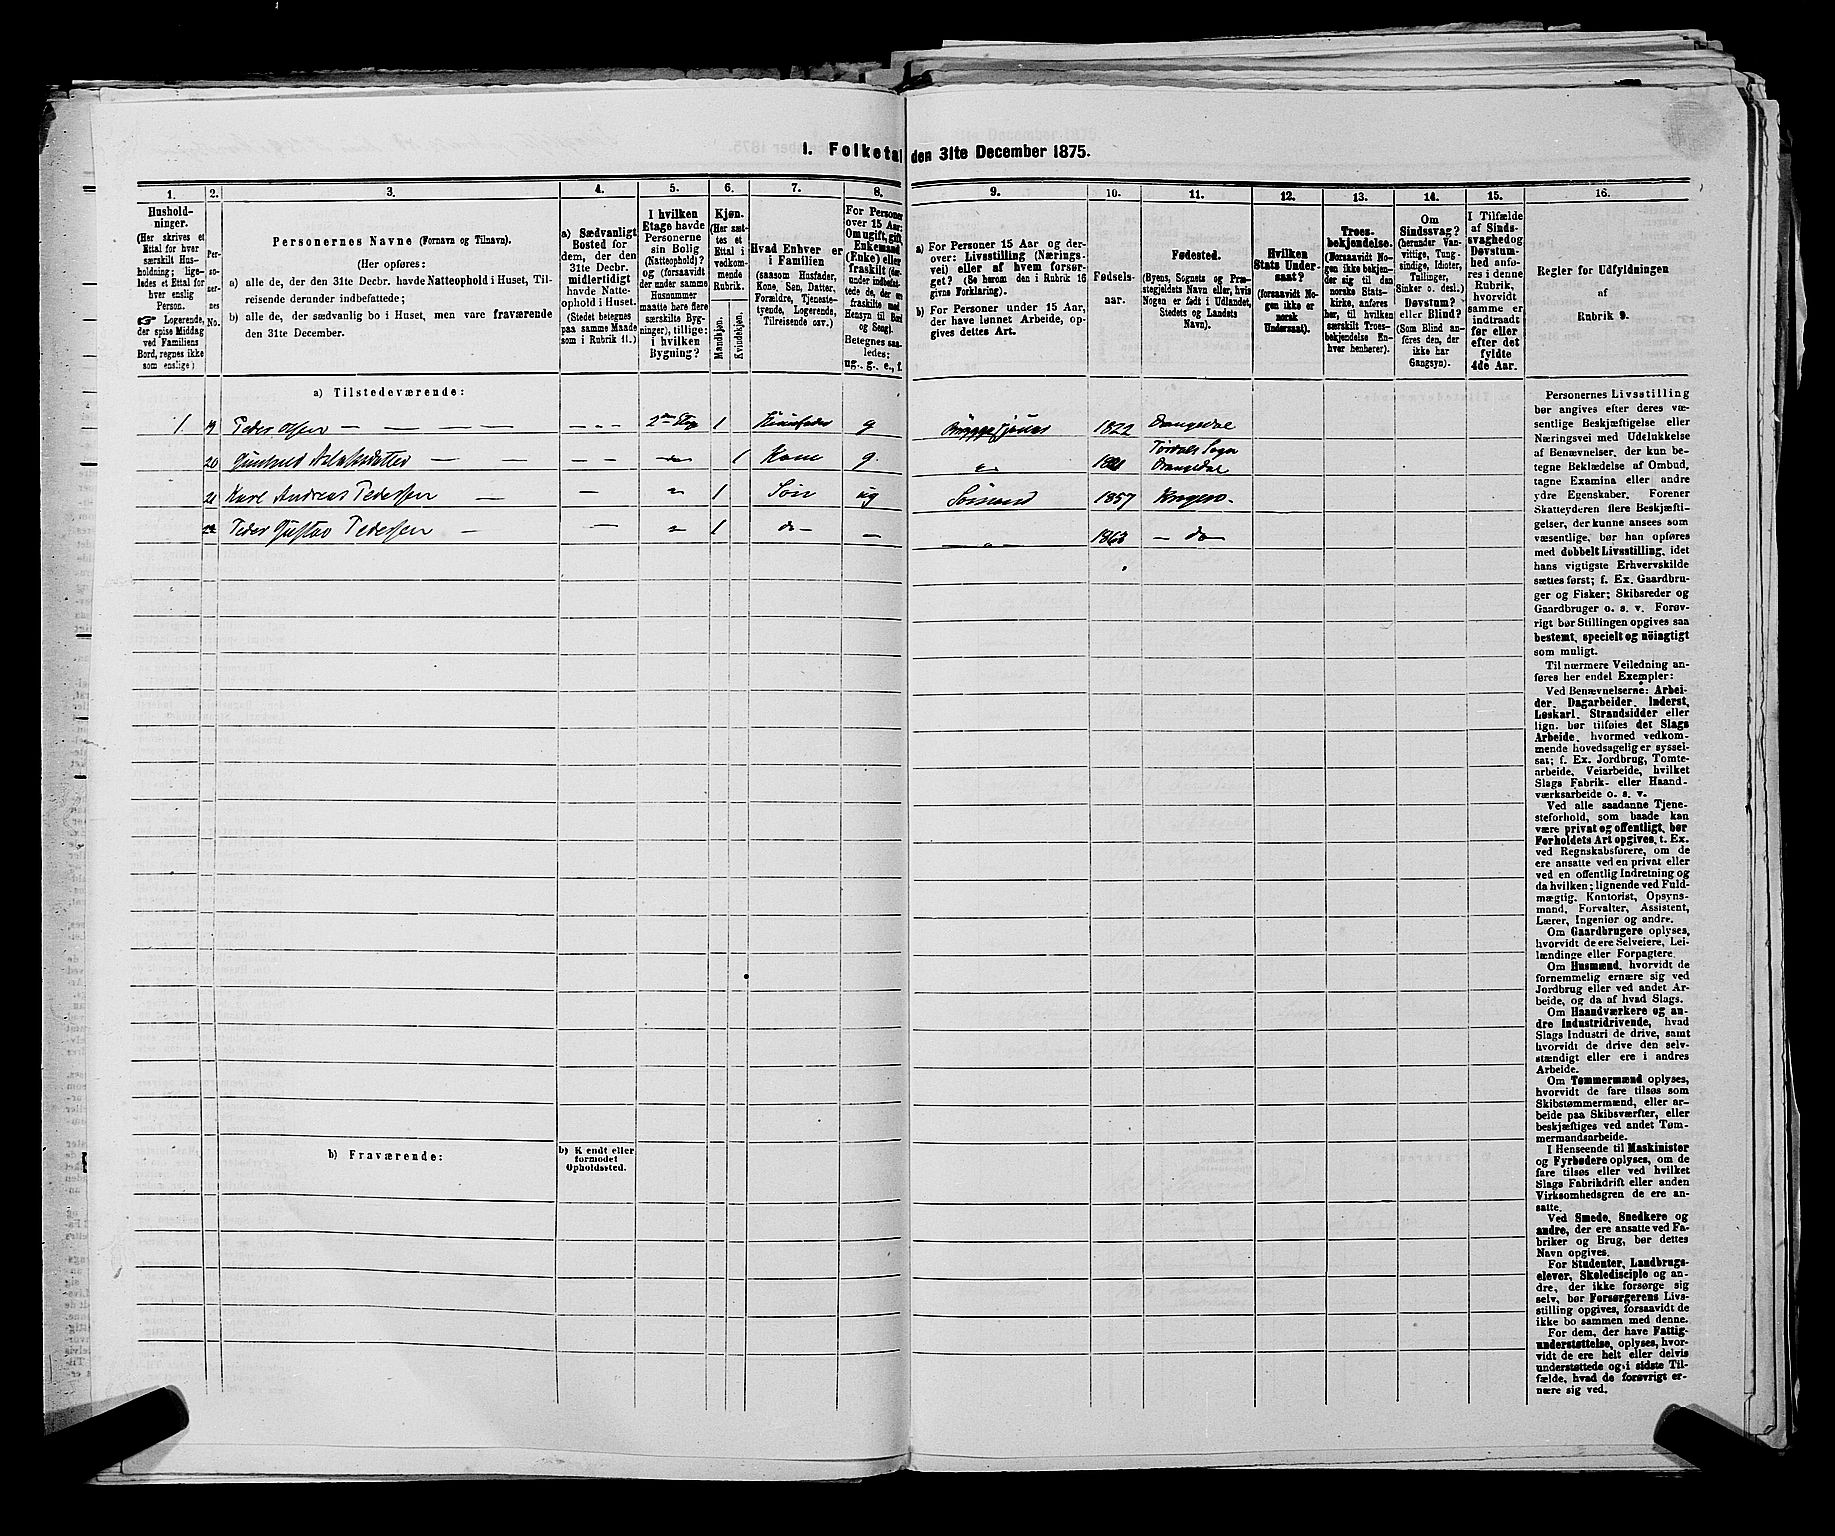 1. Folketal den 31te December 1875.
1.
Hushold-
ninger.
(Her skrives et
Ettal for hver
særskilt Hus-
holdning; lige-
ledes et Ettal for
hver enslig
Person.
☞ Logerende,
der spise Middag
ved Familiens
Bord, regnes ikke
som enslige)
2.
Per-
so-
ner-
nes
No.
3.
Personernes Navne (Fornavn og Tilnavn).
(Her opføres:
a) alle de, der den 31te Decbr. havde Natteophold i Huset, Til-
reisende derunder indbefattede;
b) alle de, der sædvanlig bo i Huset, men vare fraværende
den 31te December.
4.
a) Sædvanligt
Bosted for
dem, der den
31te Decbr.
midlertidigt
havde Natte-
ophold i Huset.
(Stedet betegnes
paa samme Maade
som i Rubrik 11.)
5.
I hvilken
Etage havde
Personerne
sin Bolig
(Natteophold)?
og (forsaavidt
der under samme
Husnummer
maatte høre flere
særskilte Byg-
ninger), tillige:
i hvilken
Bygning?
6.
Kjøn.
(Her sæt-
tes et
Ettal i
vedkom-
mende
Rubrik.
Mandkjøn.
Kvindekjøn.
7.
Hvad Enhver er
i Familien
(saasom Husfader,
Kone, Søn, Datter,
Forældre, Tjeneste-
tyende, Logerende,
Tilreisende osv.)
8.
For Personer
over 15 Aar:
Om ugift, gift,
Enkemand
(Enke) eller
fraskilt (der-
under indbefat-
tede de, der ere
fraskilte med
Hensyn til Bord
og Seng).
Betegnes saa-
ledes:
ug., g., e., f.
9.
a) For Personer 15 Aar og der-
over: Livsstilling (Nærings-
vei) eller af hvem forsør-
get? (Se herom den i Rubrik 16
givne Forklaring).
b) For Personer under 15 Aar,
der have lønnet Arbeide, op-
gives dettes Art.
10.
Fødsels-
aar.
11.
Fødested.
(Byens, Sognets og Præ-
stegjeldets Navn eller, hvis
Nogen er født i Udlandet,
Stedets og Landets
Navn).
12.
Hvilken
Stats Under-
saat?
(forsaavidt No-
gen ikke er
norsk
Undersaat).
13.
Troes-
bekjendelse.
(Forsaavidt No-
gen ikke bekjen-
der sig til den
norske Stats-
kirke, anføres
her, til hvilken
særskilt Troes-
bekjendelse En-
hver henhører).
14.
Om
Sindssvag?
(herunder Van-
vittige, Tung-
sindige, Idioter,
Tullinger,
Sinker o. desl.)
Døvstum?
eller Blind?
(Som Blind an-
føres den, der
ikke har
Gangsyn).
15.
I Tilfælde
af Sinds-
svaghed og
Døvstum-
hed anfø-
res i denne
Rubrik,
hvorvidt
samme er
indtraadt
før eller
efter det
fyldte
4de Aar.
16.
Regler for Udfyldningen
af
Rubrik 9.
a) Tilstedeværende:
1. 19 Peder Olsen — — — — — — 2den Etg 1 Huusfader g 1822 Drangedal
20 Gunhild Aslaksdatter — — — — do 1 Kone g. — " — Tørdals Sogn Drangedal
21 Karl Andreas Pedersen — — " 1 Søn ug Sømand 1857 Kragerø.
22 Peder Gustav Pedersen — — " 1 do — — " — 1863 — do —
b) Fraværende:
b) Kjendt eller
formodet
Opholdssted.
Personernes Livsstilling
bør angives efter deres væ-
sentlige Beskjæftigelse eller
Næringsvei med Udelukkelse
af Benævnelser, der kun be-
tegne Beklædelse af Ombud,
tagne Examina eller andre
ydre Egenskaber. Forener
Skatteyderen flere Beskjæfti-
gelser, der kunne ansees som
væsentlige, bør han opføres
med dobbelt Livsstilling, idet
hans vigtigste Erhvervskilde
sættes først; f. Ex. Gaardbru-
ger og Fisker; Skibsreder og
Gaardbruger o. s. v. Forøv-
rigt bør Stillingen opgives saa
bestemt, specielt og nøiagtigt
som muligt.
Til nærmere Veiledning an-
føres her endel Exempler:
Ved Benævnelserne: Arbei-
der, Dagarbeider, Inderst,
Løskarl, Strandsidder eller
lign. bør tilføies det Slags
Arbeide, hvormed vedkom-
mende hovedsagelig er syssel-
sat; f. Ex. Jordbrug, Tomte-
arbeide, Veiarbeide, hvilket
Slags Fabrik- eller Haand-
værksarbeide o. s. v.
Ved alle saadanne Tjene-
steforhold, som baade kan
være privat og offentligt, bør
Forholdets Art opgives, t. Ex.
ved Regnskabsførere, om de
ere ansatte ved en privat eller
ved en offentlig Indretning og
da hvilken; lignende ved Fuld-
mægtig, Kontorist, Opsyns-
mand, Forvalter, Assistent,
Lærer, Ingeniør og andre.
Om Gaardbrugere oplyses,
hvorvidt de ere Selveiere, Lei-
lændinge eller Forpagtere.
Om Husmænd, hvorvidt de
fornemmelig ernære sig ved
Jordbrug eller ved andet Ar-
beide, og da af hvad Slags.
Om Haandværkere og an-
dre Industridrivende, hvad
Slags Industri de drive, samt
hvorvidt de drive den selv-
stændigt eller ere i andres
Arbeide.
Om Tømmermænd oplyses,
hvorvidt de fare tilsøs som
Skibstømmermænd, eller ar-
beide paa Skibsværfter, eller
beskjæftiges ved andet Tøm-
mermandsarbeide.
I Henseende til Maskinister
og Fyrbødere oplyses, om de
fare tilsøs eller ved hvilket
Slags Fabrikdrift eller anden
Virksomhedsgren de ere an-
satte.
Ved Smede, Snedkere og
andre, der ere ansatte ved Fa-
briker og Brug, bør dettes
Navn opgives.
For Studenter, Landbrugs-
elever, Skoledisciple og an-
dre, der ikke forsørge sig
selv, bør Forsørgerens Livs-
stilling opgives, forsaavidt de
ikke bo sammen med denne.
For dem, der have Fattig-
understøttelse, oplyses, hvor-
vidt de ere helt eller delvis
understøttede og i sidste Til-
fælde, hvad de forøvrigt er-
nære sig ved.